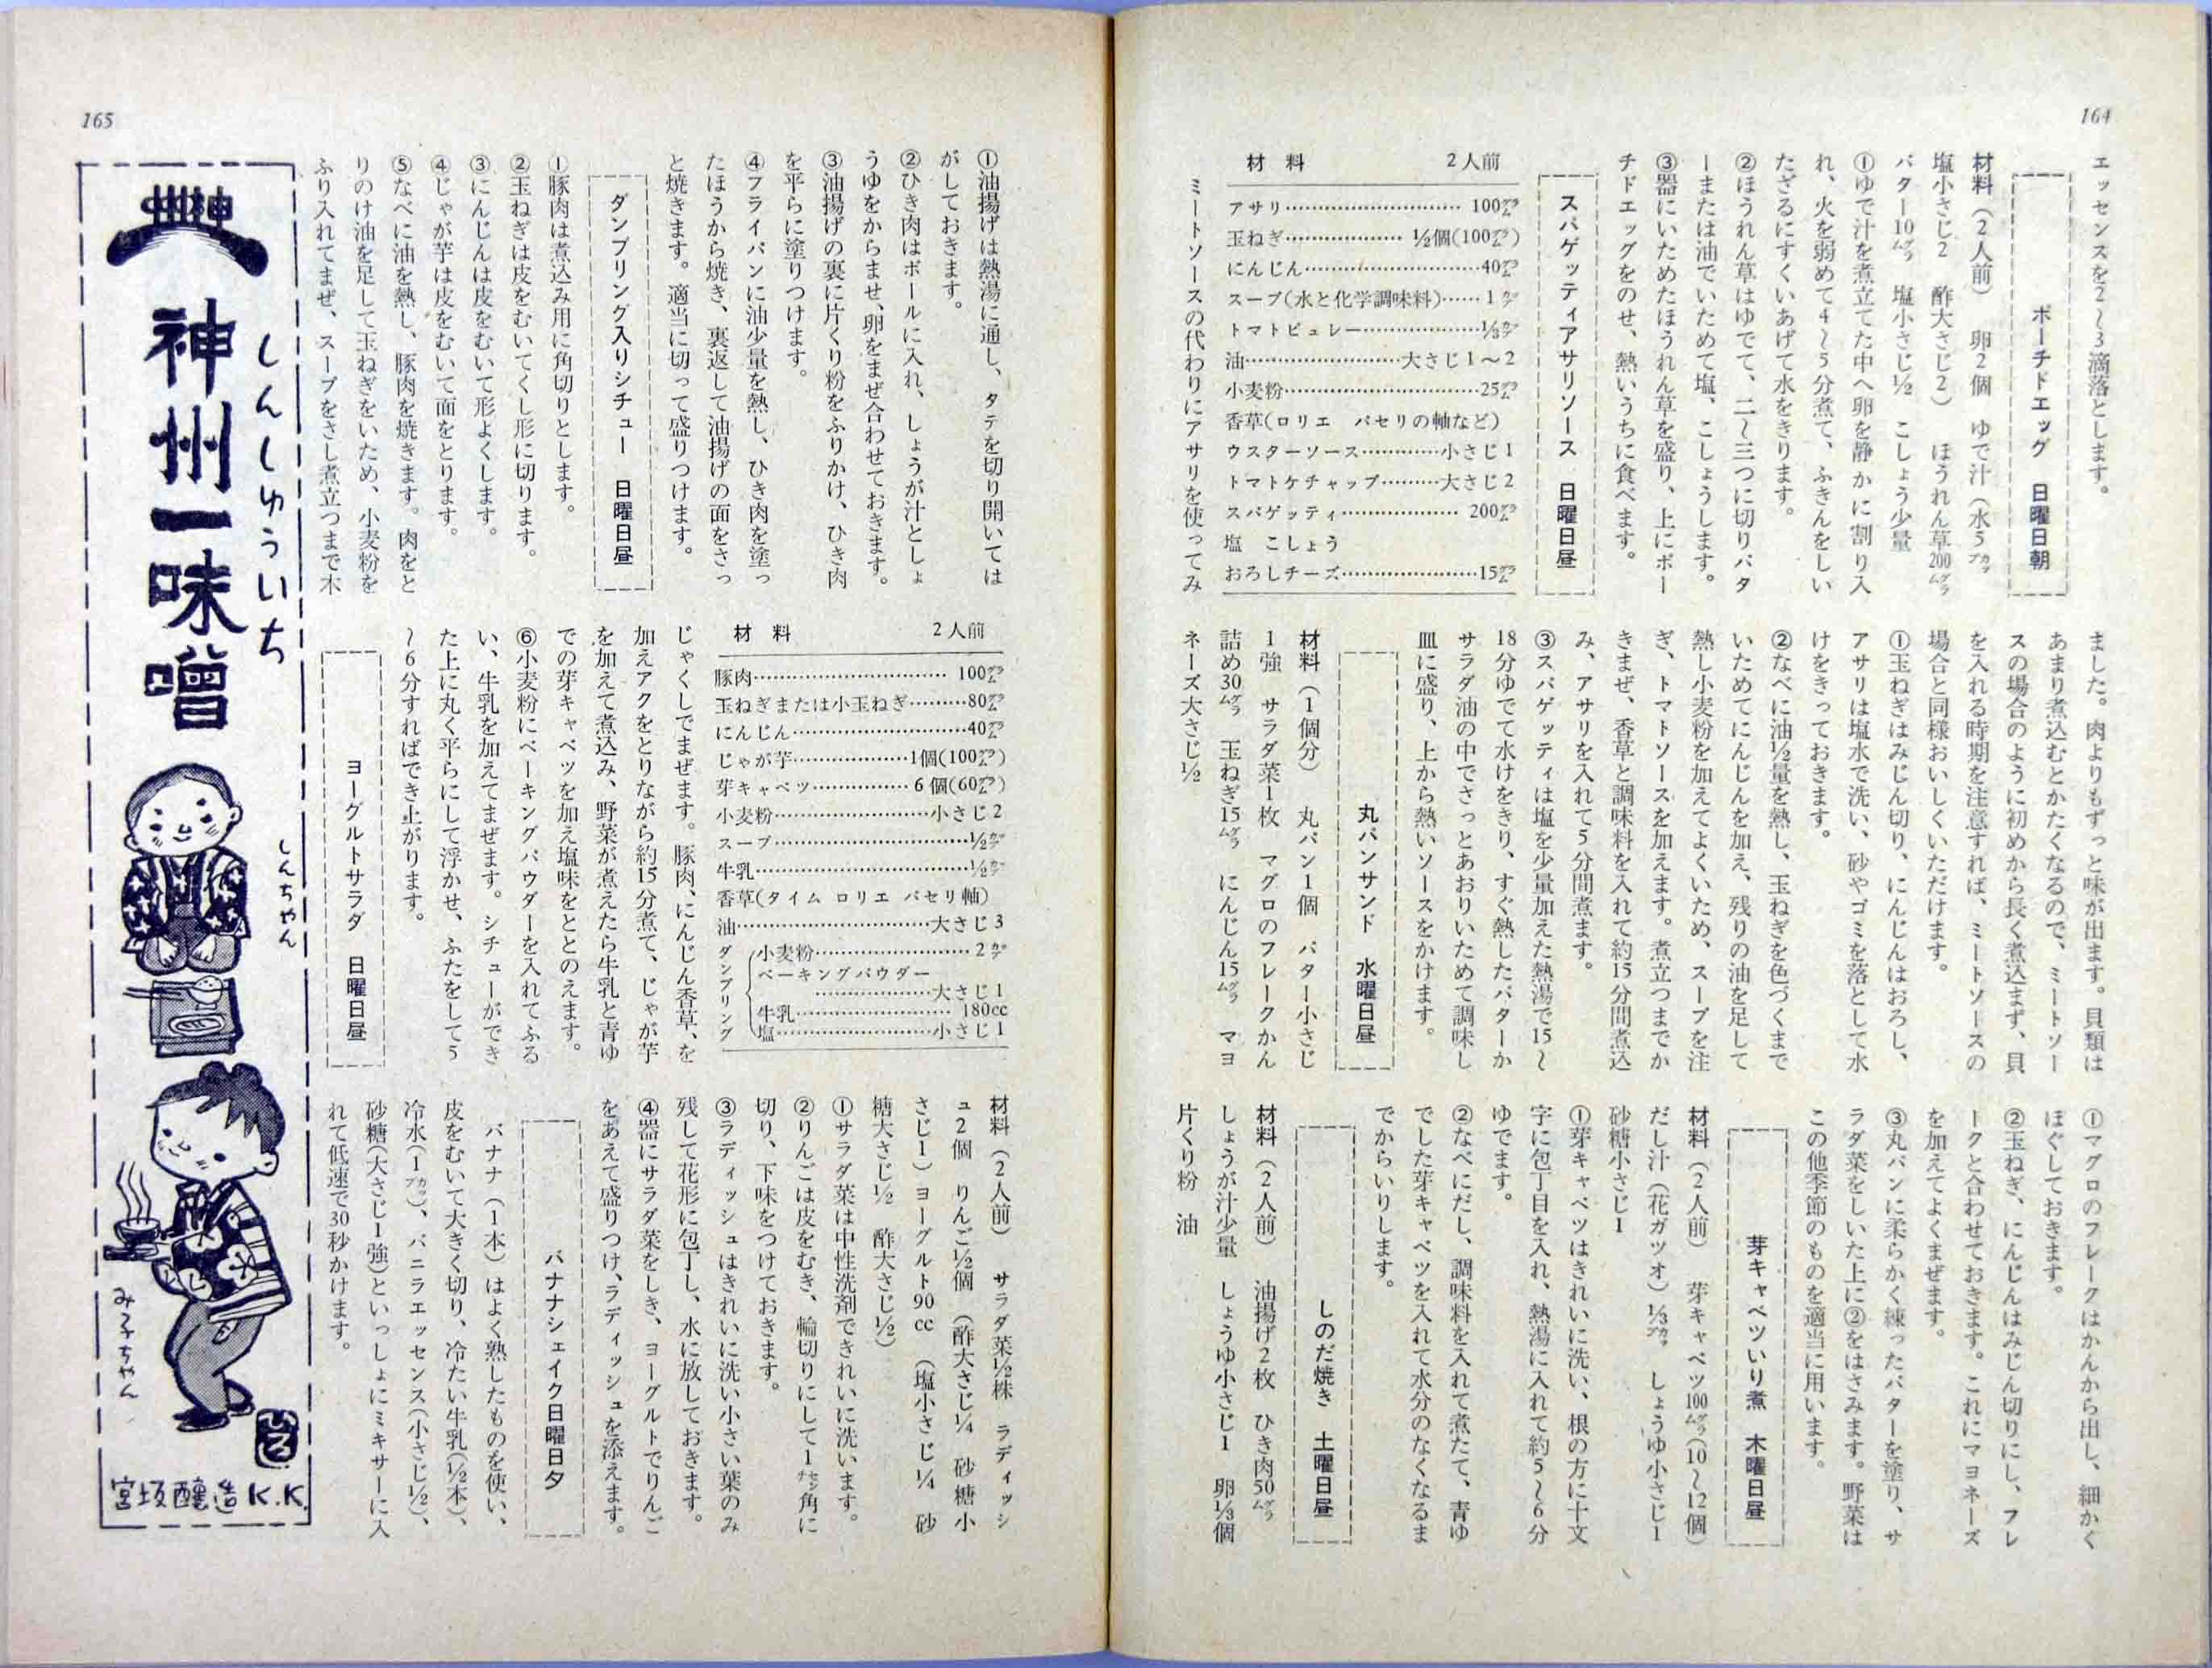 164
エッセンスを2〜3滴落とします。
ポーチドエッグ 日曜日朝
材料（2人前） 卵2個 ゆで汁（水5カップ
塩小さじ2 酢大さじ2） ほうれん草200グラム
バター10グラム 塩小さじ½ こしょう少量
①ゆで汁を煮立てた中へ卵を静かに割り入
れ、火を弱めて4〜5分煮て、ふきんをしい
たざるにすくいあげて水をきります。
②ほうれん草はゆでて、二〜三つに切りバタ
ーまたは油でいためて塩、こしょうします。
③器にいためたほうれん草を盛り、上にポー
チドエッグをのせ、熱いうちに食べます。
スパゲッティアサリソース 日曜日昼
材料 2人前
アサリ……100グラム
玉ねぎ……½個(100グラム)
にんじん……40グラム
スープ(水と化学調味料)……1カップ
トマトピュレー……⅓カップ
油……大さじ1〜2
小麦粉……25グラム
香草(ロリエ パセリの軸など)
ウスターソース……小さじ1
トマトケチャップ……大さじ2
スパゲッティ……200グラム
塩 こしょう
おろしチーズ……15グラム
ミートソースの代わりにアサリを使ってみ
ました。肉よりもずっと味が出ます。貝類は
あまり煮込むとかたくなるので、ミートソー
スの場合のように初めから長く煮込まず、貝
を入れる時期を注意すれば、ミートソースの
場合と同様おいしくいただけます。
①玉ねぎはみじん切り、にんじんはおろし、
アサリは塩水で洗い、砂やゴミを落として水
けをきっておきます。
②なべに油½量を熱し、玉ねぎを色づくまで
いためてにんじんを加え、残りの油を足して
熱し小麦粉を加えてよくいため、スープを注
ぎ、トマトソースを加えます。煮立つまでか
きまぜ、香草と調味料を入れて約15分間煮込
み、アサリを入れて5分間煮ます。
③スパゲッティは塩を少量加えた熱湯で15〜
18分ゆでて水けをきり、すぐ熱したバターか
サラダ油の中でさっとあおりいためて調味し
皿に盛り、上から熱いソースをかけます。
丸パンサンド 水曜日昼
材料（1個分） 丸パン1個 バター小さじ
1強 サラダ菜1枚 マグロのフレークかん
詰め30グラム 玉ねぎ15グラム にんじん15グラム マヨ
ネーズ大さじ½
①マグロのフレークはかんから出し、細かく
ほぐしておきます。
②玉ねぎ、にんじんはみじん切りにし、フレ
ークと合わせておきます。これにマヨネーズ
を加えてよくまぜます。
③丸パンに柔らかく練ったバターを塗り、サ
ラダ菜をしいた上に②をはさみます。野菜は
この他季節のものを適当に用います。
芽キャベツいり煮 木曜日昼
材料（2人前） 芽キャベツ100グラム(10〜12個)
だし汁（花ガツオ）⅓カップ しょうゆ小さじ1
砂糖小さじ1
①芽キャベツはきれいに洗い、根の方に十文
字に包丁目を入れ、熱湯に入れて約5〜6分
ゆでます。
②なべにだし、調味料を入れて煮たて、青ゆ
でした芽キャベツを入れて水分のなくなるま
でからいりします。
しのだ焼き 土曜日昼
材料（2人前） 油揚げ2枚 ひき肉50グラム
しょうが汁少量 しょうゆ小さじ1 卵⅓個
片くり粉 油
165
①油揚げは熱湯に通し、タテを切り開いては
がしておきます。
②ひき肉はボールに入れ、しょうが汁としょ
うゆをからませ、卵をまぜ合わせておきます。
③油揚げの裏に片くり粉をふりかけ、ひき肉
を平らに塗りつけます。
④フライパンに油少量を熱し、ひき肉を塗っ
たほうから焼き、裏返して油揚げの面をさっ
と焼きます。適当に切って盛りつけます。
ダンプリング入りシチュー 日曜日昼
①豚肉は煮込み用に角切りとします。
②玉ねぎは皮をむいてくし形に切ります。
③にんじんは皮をむいて形よくします。
④じゃが芋は皮をむいて面をとります。
⑤なべに油を熱し、豚肉を焼きます。肉をと
りのけ油を足して玉ねぎをいため、小麦粉を
ふり入れてまぜ、スープをさし煮立つまで木
材料 2人前
豚肉……100グラム
玉ねぎまたは小玉ねぎ……80グラム
にんじん……40グラム
じゃが芋……1個(100グラム)
芽キャベツ……6個(60グラム)
小麦粉……小さじ2
スープ……½カップ
牛乳……½カップ
香草(タイム ロリエ パセリ軸)
油……大さじ3
ダンプリング
小麦粉……2カップ
ベーキングパウダー
……大さじ1
牛乳……180cc
塩……小さじ1
じゃくしでまぜます。豚肉、にんじん香草、を
加えアクをとりながら約15分煮て、じゃが芋
を加えて煮込み、野菜が煮えたら牛乳と青ゆ
での芽キャベツを加え塩味をととのえます。
⑥小麦粉にベーキングパウダーを入れてふる
い、牛乳を加えてまぜます。シチューができ
た上に丸く平らにして浮かせ、ふたをして5
〜6分すればでき上がります。
ヨーグルトサラダ 日曜日昼
材料（2人前） サラダ菜½株 ラディッシ
ュ2個 りんご½個 （酢大さじ¼ 砂糖小
さじ1）ヨーグルト90cc （塩小さじ¼ 砂
糖大さじ½ 酢大さじ½）
①サラダ菜は中性洗剤できれいに洗います。
②りんごは皮をむき、輪切りにして1センチ角に
切り、下味をつけておきます。
③ラディッシュはきれいに洗い小さい葉のみ
残して花形に包丁し、水に放しておきます。
④器にサラダ菜をしき、ヨーグルトでりんご
をあえて盛りつけ、ラディッシュを添えます。
バナナシェイク日曜日夕
バナナ（1本）はよく熟したものを使い、
皮をむいて大きく切り、冷たい牛乳(½本)、
冷水(1カップ)、バニラエッセンス(小さじ½)、
砂糖(大さじ1強)といっしょにミキサーに入
れて低速で30秒かけます。
しんしゅういち
神州一味噌
しんちゃん
みこちゃん
宮坂醸造K.K.